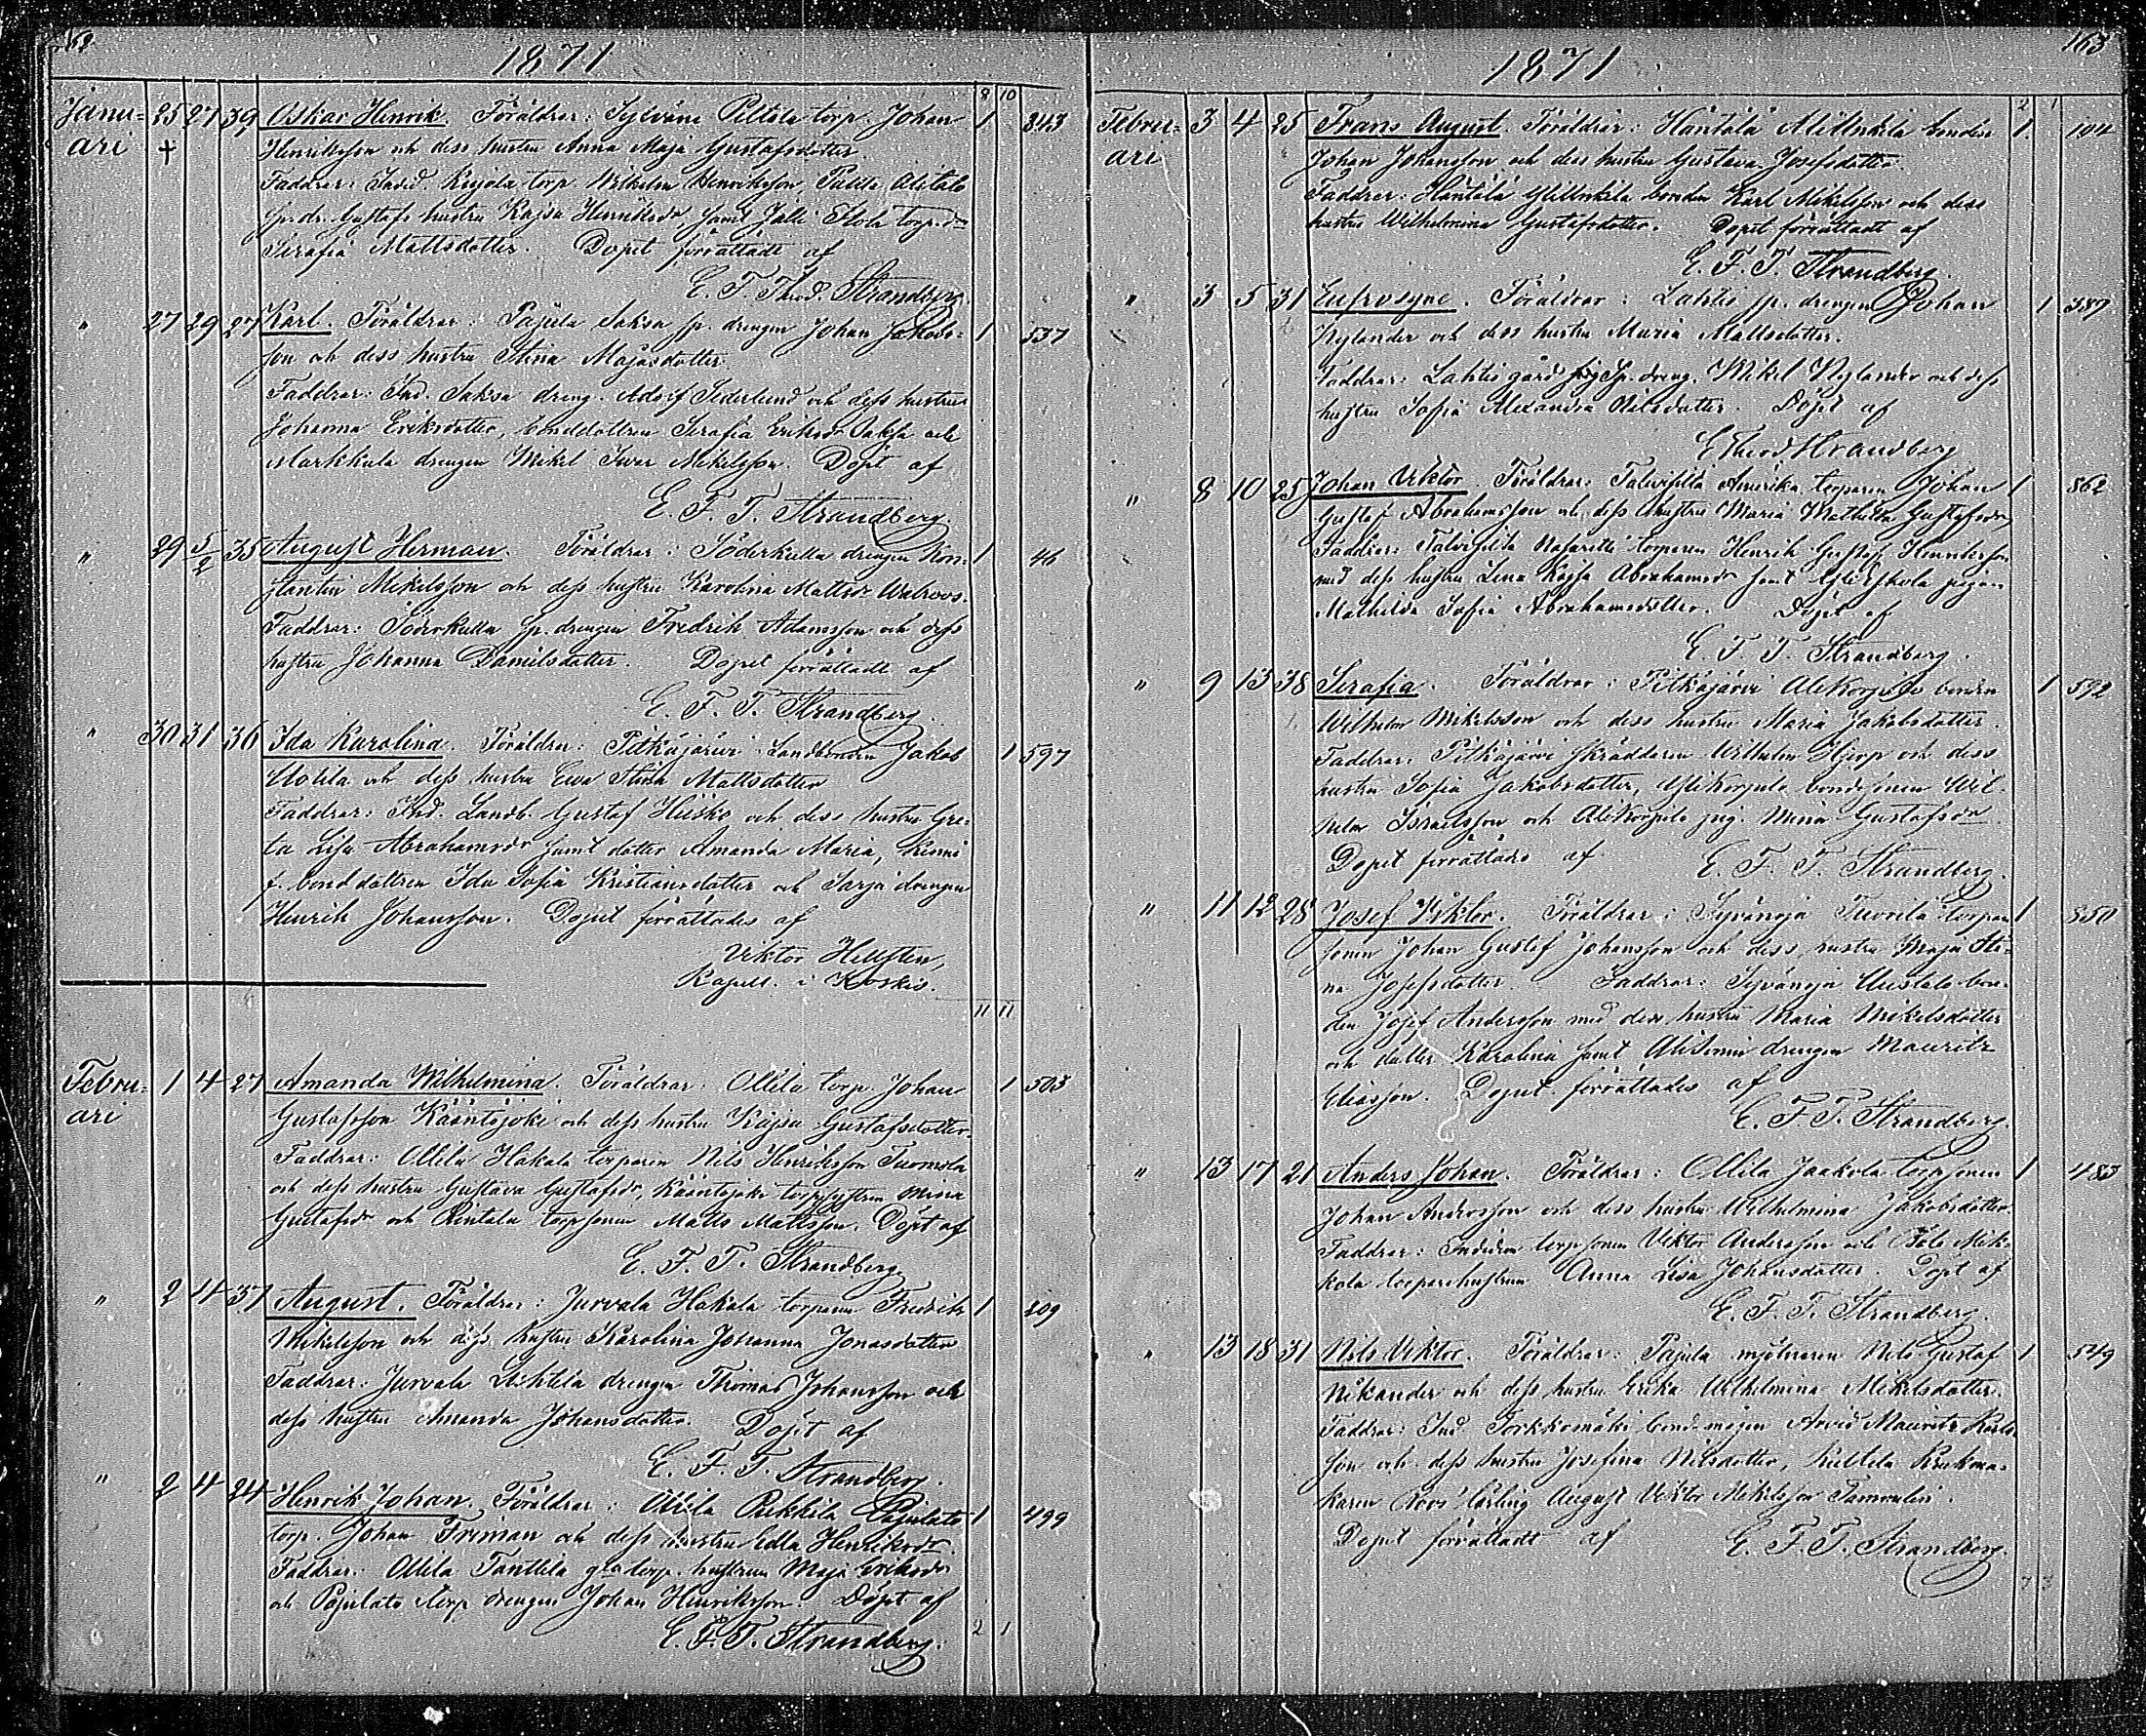 162
1871
8 10
Janu= 25 27 39 Oskar Henrik. Föräldrar: Syvänä Peltola torp. Johan 1 843
ari † Henriksson och dess hustru Anna Maja Gustafsdotter
Faddrar: torp. Wilhelm Henriksson, Alitalo
Gustafs hustru Kajsa Henriksdr samt
Serafia Mattsdotter. Dopet förrättade af
E. F. Theod. Strandberg.
" 27 29 27 Karl. Föräldrar: Pajula Saksa sp. drengen Johan Jakobs= 1 537
son och dess hustru Stina Majasdotter.
Faddrar: Ind. Saksa dreng. Adolf Sederlund och dess hustru
Johanna Eriksdotter, bonddottren Serafia Eriksdr Saksa och
Markkula drengen Mikel Iwar Mikelsson. Döpt af
E. F. T. Strandberg.
" 29 5/2 35 August Herman. Föräldrar: Söderkulla drengen Kon= 1 46
stantin Mikelsson och dess hustru Karolina Mattsdr Walroos.
Faddrar: Söderkulla sp. drengen Fredrik Adamsson och dess
hustru Johanna Danielsdotter. Dopet förrättadt af
E. F. T. Strandberg.
" 30 31 36 Ida Karolina. Föräldrar: Pitkäjärvi Landbonden Jakob 1 597
Uotila och dess hustru Ewa Stina Mattsdotter
Faddrar: Ind. Landb. Gustaf Heiska och dess hustru Gre=
ta Lisa Abrahamsdr samt dotter Amanda Maria,
f. bonddottren Ida Sofia Kristiansdotter och Sarja drengen
Henrik Johansson. Dopet förrättades af
Viktor Hellsten,
Kapell. i Koskis.
11 11
Febru= 1 4 27 Amanda Wilhelmina. Föräldrar: Ollila torp. Johan 1 503
ari Gustafsson Kääntöjoki och dess hustru Kajsa Gustafsdotter.
Faddrar: Ollila Hakala torparen Nils Henriksson Tuomola
och dess hustru Gustava Gustafsdr, Kääntöjoki torpsystern Mina
Gustafsdr och Rintala torpsonen Matts Mattsson. Döpt af
E. F. T. Strandberg.
" 2 4 37 August. Föräldrar: Jurvala Hakala torparen Fredrik 1 209
Mikelsson och dess hustru Karolina Johanna Jonasdotter
Faddrar: Jurvala Lehtilä drengen Thomas Johansson och
dess hustru Amanda Johansdotter. Döpt af
E. F. T. Strandberg.
" 2 4 24 Henrik Johan. Föräldrar: Ollila Pajulato 1 499
torp. Johan Friman och dess hustru Edla Henriksdr
Faddrar: Ollila Tanttila torp. hustrun Maja Eriksdr
och Pajulato torp drengen Johan Henriksson. Döpt af
E. F. T. Strandberg. 2 1
163
1871
2 1
Febru= 3 4 25 Frans August. Föräldrar: Häntälä bonden 1 104
ari Johan Johansson och dess hustru Gustava Josefsdotter.
Faddrar: Häntälä bonden Karl Mikelsson och dess
hustru Wilhelmina Gustafsdotter. Dopet förrättadt af
E. F. T. Strandberg.
" 3 5 31 Eufrosyne. Föräldrar: Lahtis sp. drengen Johan 1 387
Nylander och dess hustru Maria Mattsdotter.
Faddrar: Lahtis gård sp. dreng. Mikel Nylander och dess
hustru Sofia Alexandra Nilsdotter. Döpt af
E Theod Strandberg
" 8 10 25 Johan Viktor. Föräldrar: Talvisilta Amerika torparen Johan 1 862
Gustaf Abrahamsson och dess hustru Maria Mathilda Gustafsdr
Faddrar: Talvisilta Nasaretti torparen Henrik Gustaf Henriksson
med dess hustru Lena Kajsa Abrahamsdr samt pigan
Mathilda Sofia Abrahamsdotter. Döpt af
E. F. T. Strandberg.
" 9 13 38 Serafia. Föräldrar: Pitkäjärvi Alikorpela bonden 1 592
Wilhelm Mikelsson och dess hustru Maria Jakobsdotter.
Faddrar: Pitkäjärvi skräddaren Wilhelm Hjerp och dess
hustru Sofia Jakobsdotter, Ylikorpela bondsonen Wil=
helm Israelsson och Alikorpela pig. Mina Gustafsdr
Dopet förrättade af E. F. T. Strandberg.
" 11 12 28 Josef Viktor. Föräldrar: Syvänojä torpare 1 850
sonen Johan Gustaf Johansson och dess hustru Maja Sti=
na Josefsdotter. Faddrar: Syvänojä Uustalo bon=
den Josef Andersson med dess hustru Maria Mikelsdotter
och dotter Karolina samt drengen Mauritz
Eliasson. Dopet förrättades af
E. F. T. Strandberg.
" 13 17 21 Anders Johan. Föräldrar: Ollila Jaakola torpsonen 1 483
Johan Andersson och dess hustru Wilhelmina Jakobsdotter.
Faddrar: torpsonen Viktor Andersson och Mik=
kola torparehustrun Anna Lisa Johansdotter. Döpt af
E. F. T. Strandberg.
" 13 18 31 Nils Viktor. Föräldrar: Pajula mjölnaren Nils Gustaf 1 549
Nikander och dess hustru Erika Wilhelmina Mikelsdotter.
Faddrar: Ind. Torkkomäki bond mågen Arvid Mauritz Karls
son och dess hustru Josefina Nilsdotter, Krukma=
karen Roos' lärling August Viktor Mikelsson
Dopet förrättadt af E. F. T. Strandberg.
7 3